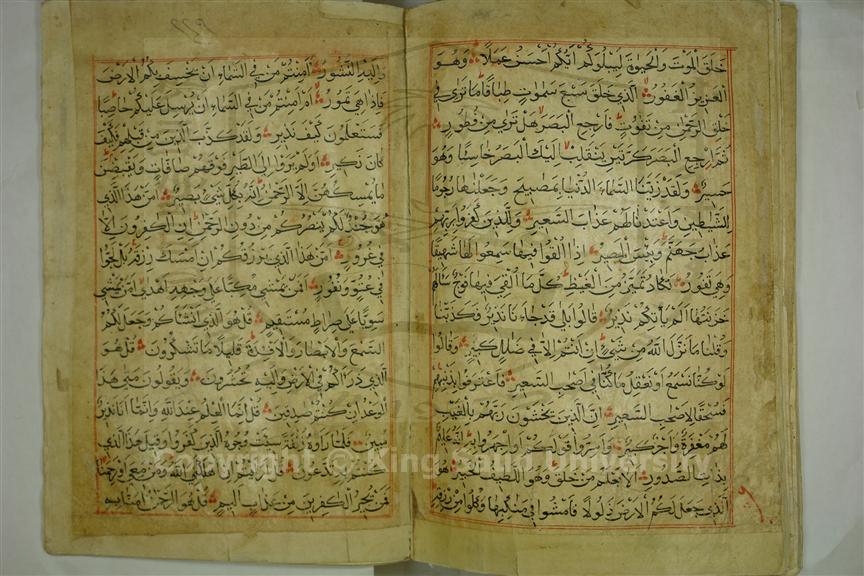 خَلَقَ الْمَوْتَ وَالْحَيٰوةَ لِيَبْلُوَكُمْ اَيُّكُمْ اَحْسَنُ عَمَلًا وَهُوَ
الْعَزِيزُ الْغَفُورُ الَّذِي خَلَقَ سَبْعَ سَمٰوَاتٍ طِبَاقًا مَا تَرٰى فِي
خَلْقِ الرَّحْمٰنِ مِنْ تَفٰوُتٍ فَارْجِعِ الْبَصَرَ هَلْ تَرٰى مِنْ فُطُورٍ
ثُمَّ ارْجِعِ الْبَصَرَ كَرَّتَيْنِ يَنْقَلِبْ اِلَيْكَ الْبَصَرُ خَاسِئًا وَهُوَ
حَسِيرٌ وَلَقَدْ زَيَّنَّا السَّمَاءَ الدُّنْيَا بِمَصَابِيحَ وَجَعَلْنَاهَا رُجُومًا
لِلشَّيَاطِينِ وَاَعْتَدْنَا لَهُمْ عَذَابَ السَّعِيرِ وَلِلَّذِينَ كَفَرُوا بِرَبِّهِمْ
عَذَابُ جَهَنَّمَ وَبِئْسَ الْمَصِيرُ اِذَا اُلْقُوا فِيهَا سَمِعُوا لَهَا شَهِيقًا
وَهِيَ تَفُورُ تَكَادُ تَمَيَّزُ مِنَ الْغَيْظِ كُلَّمَا اُلْقِيَ فِيهَا فَوْجٌ سَاَلَهُمْ
خَزَنَتُهَا اَلَمْ يَأْتِكُمْ نَذِيرٌ قَالُوا بَلٰى قَدْ جَاءَنَا نَذِيرٌ فَكَذَّبْنَا
وَقُلْنَا مَا نَزَّلَ اللّٰهُ مِنْ شَيْءٍ اِنْ اَنْتُمْ اِلَّا فِي ضَلٰلٍ كَبِيرٍ وَقَالُوا
لَوْ كُنَّا نَسْمَعُ اَوْ نَعْقِلُ مَا كُنَّا فِي اَصْحٰبِ السَّعِيرِ فَاعْتَرَفُوا بِذَنْبِهِمْ
فَسُحْقًا لِاَصْحٰبِ السَّعِيرِ اِنَّ الَّذِينَ يَخْشَوْنَ رَبَّهُمْ بِالْغَيْبِ
لَهُمْ مَغْفِرَةٌ وَاَجْرٌ كَبِيرٌ وَاَسِرُّوا قَوْلَكُمْ اَوِ اجْهَرُوا بِهِ اِنَّهُ عَلِيمٌ
بِذَاتِ الصُّدُورِ اَلَا يَعْلَمُ مَنْ خَلَقَ وَهُوَ اللَّطِيفُ الْخَبِيرُ هُوَ
الَّذِي جَعَلَ لَكُمُ الْاَرْضَ ذَلُولًا فَامْشُوا فِي مَنَاكِبِهَا وَكُلُوا مِنْ رِزْقِهِ
وَاِلَيْهِ النُّشُورُ ءَاَمِنْتُمْ مَنْ فِي السَّمَاءِ اَنْ يَخْسِفَ بِكُمُ الْاَرْضَ
فَاِذَا هِيَ تَمُورُ اَمْ اَمِنْتُمْ مَنْ فِي السَّمَاءِ اَنْ يُرْسِلَ عَلَيْكُمْ حَاصِبًا
فَسَتَعْلَمُونَ كَيْفَ نَذِيرِ وَلَقَدْ كَذَّبَ الَّذِينَ مِنْ قَبْلِهِمْ فَكَيْفَ
كَانَ نَكِيرِ اَوَلَمْ يَرَوْا اِلَى الطَّيْرِ فَوْقَهُمْ صَافَّاتٍ وَيَقْبِضْنَ
مَا يُمْسِكُهُنَّ اِلَّا الرَّحْمٰنُ اِنَّهُ بِكُلِّ شَيْءٍ بَصِيرٌ اَمَّنْ هٰذَا الَّذِي
هُوَ جُنْدٌ لَكُمْ يَنْصُرُكُمْ مِنْ دُونِ الرَّحْمٰنِ اِنِ الْكَافِرُونَ اِلَّا
فِي غُرُورٍ اَمَّنْ هٰذَا الَّذِي يَرْزُقُكُمْ اِنْ اَمْسَكَ رِزْقَهُ بَلْ لَجُّوا
فِي عُتُوٍّ وَنُفُورٍ اَفَمَنْ يَمْشِي مُكِبًّا عَلٰى وَجْهِهِ اَهْدٰى اَمَّنْ يَمْشِي
سَوِيًّا عَلٰى صِرَاطٍ مُسْتَقِيمٍ قُلْ هُوَ الَّذِي اَنْشَاَكُمْ وَجَعَلَ لَكُمُ
السَّمْعَ وَالْاَبْصَارَ وَالْاَفْئِدَةَ قَلِيلًا مَا تَشْكُرُونَ قُلْ هُوَ
الَّذِي ذَرَاَكُمْ فِي الْاَرْضِ وَاِلَيْهِ تُحْشَرُونَ وَيَقُولُونَ مَتٰى هٰذَا
الْوَعْدُ اِنْ كُنْتُمْ صٰدِقِينَ قُلْ اِنَّمَا الْعِلْمُ عِنْدَ اللّٰهِ وَاِنَّمَا اَنَا نَذِيرٌ
مُبِينٌ فَلَمَّا رَاَوْهُ زُلْفَةً سِيئَتْ وُجُوهُ الَّذِينَ كَفَرُوا وَقِيلَ هٰذَا الَّذِي
كُنْتُمْ بِهِ تَدَّعُونَ قُلْ اَرَاَيْتُمْ اِنْ اَهْلَكَنِيَ اللّٰهُ وَمَنْ مَعِيَ اَوْ رَحِمَنَا
فَمَنْ يُجِيرُ الْكٰفِرِينَ مِنْ عَذَابٍ اَلِيمٍ قُلْ هُوَ الرَّحْمٰنُ اٰمَنَّا بِهِ
Copyright © King Saud University